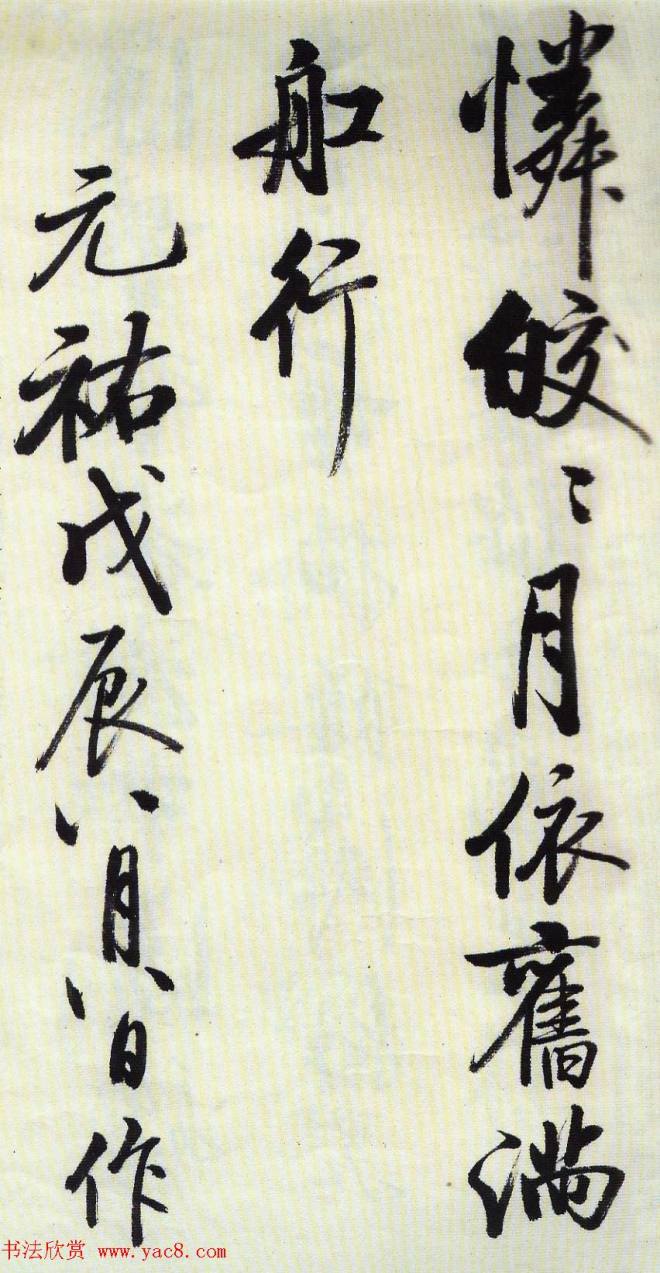 憐皎〻月依舊滿
船行
元祐戊辰八月八日作
书法欣赏 www.yac8.com